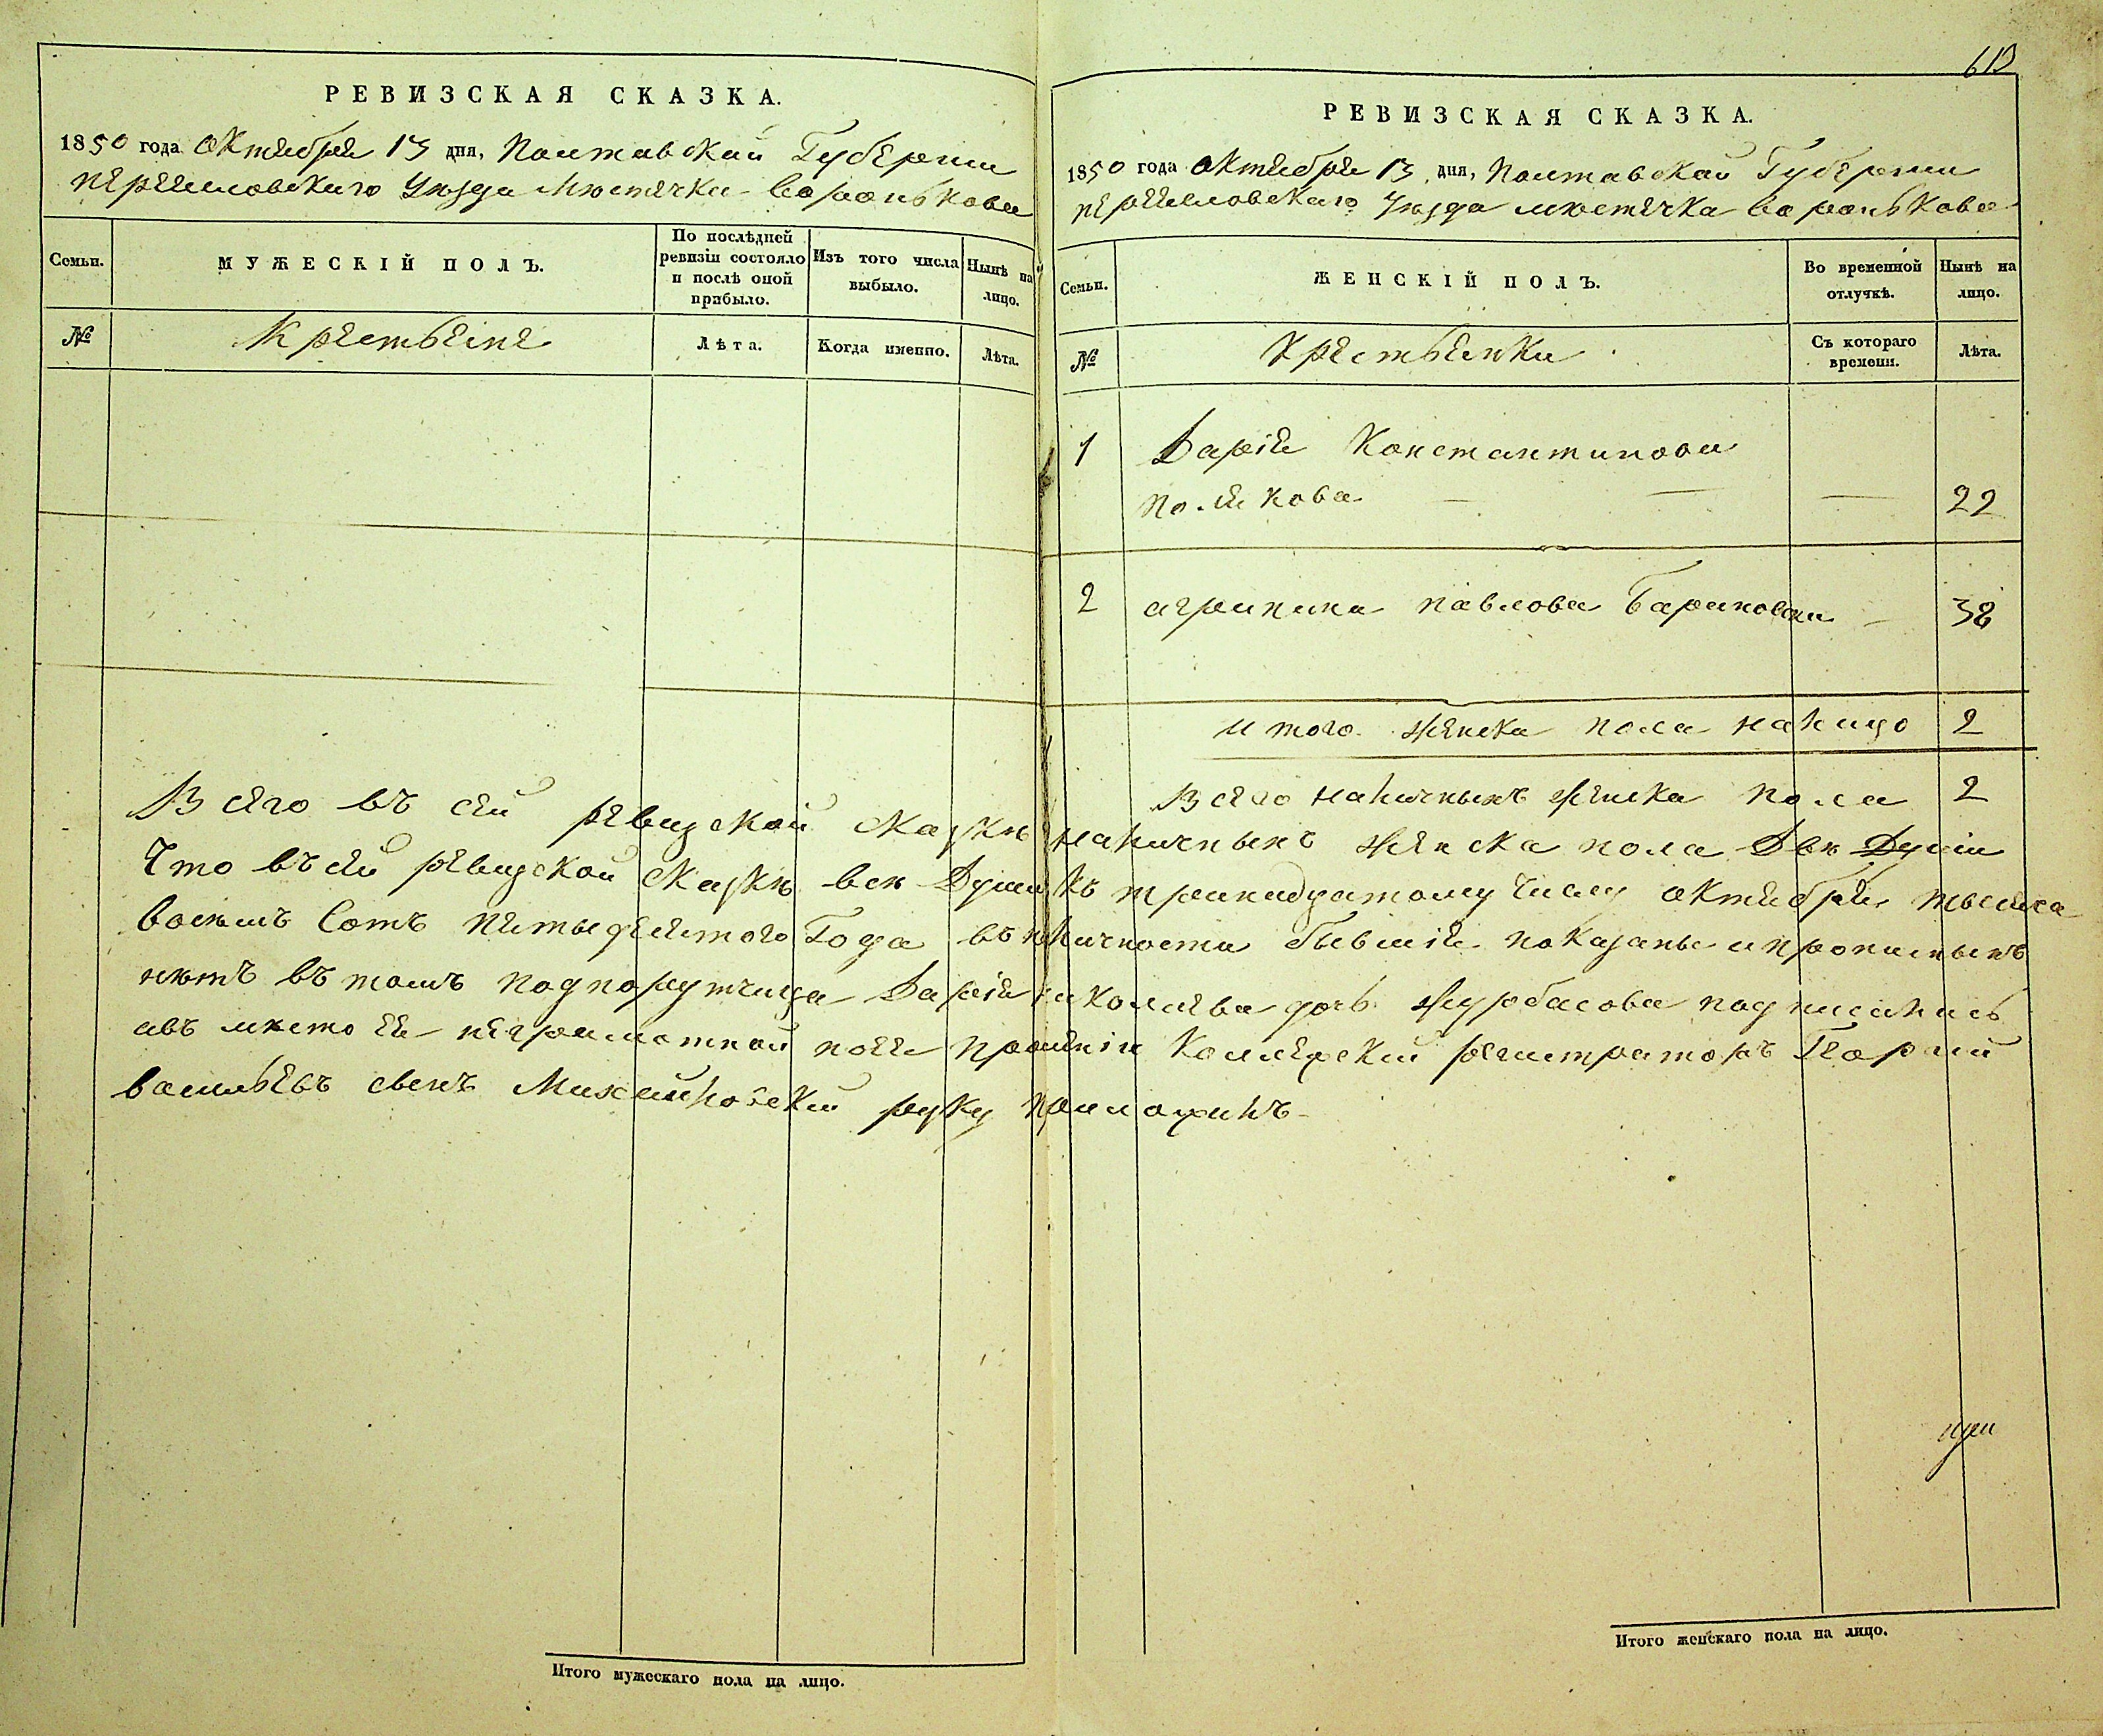 613
РЕВИЗСКАЯ СКАЗКА.
1850 года октября 13 дня, Полтавской Губернии
переяславскаго Уезда Местечка Воронькова
Семьи.
МУЖЕСКІЙ ПОЛЪ.
По послѣдней ревизіи состояло и послѣ оной прибыло.
Изъ того числа выбыло.
Нынѣ на лицо.
№
Крестьяне
Лѣта.
Когда именно.
Лѣта.
РЕВИЗСКАЯ СКАЗКА.
1850 года октября 13 дня, Полтавской Губернии
переяславскаго Уезда местечка Воронькова
Семьи.
ЖЕНСКІЙ ПОЛЪ.
Во временной отлучкѣ.
Нынѣ на лицо.
№
Крестьянки
Съ котораго времени.
Лѣта.
1 Дарія Константинова
Полякова — — — 22
2 агрипина павлова Баранова — 38
итого женска пола налицо 2
Всего наличныхъ женска пола 2
Всего въ сей ревизской сказкѣ наличныхъ женска пола Двѣ Души
Что въ сей ревизской сказкѣ всѣ Души къ тринадцатому числу октября тысяча
восемъ Сотъ пятьдесятого Года въ наличности бывшія показаны и прописныхъ
нѣтъ въ томъ подпорутчица Дарія николаева дочь Журбасова подписалась
авъ мѣсто ея неграмотной поея прошенію Колежский регистраторъ Георгий
васильевъ сынъ Михайловский руку приложилъ
при
Итого мужескаго пола на лицо.
Итого женскаго пола на лицо.